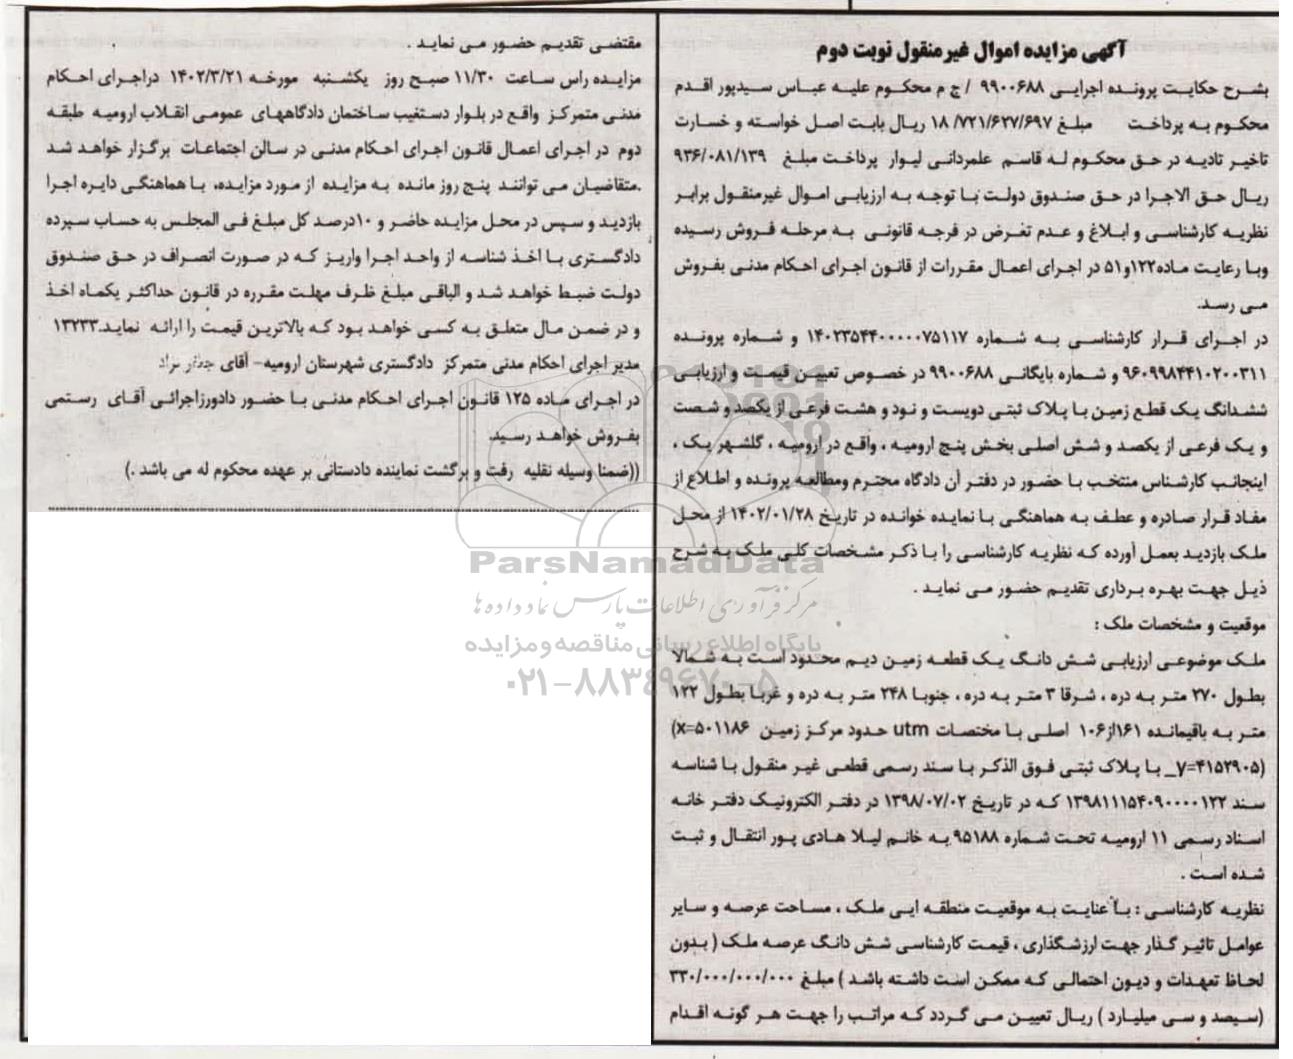 آگهی مزایده اموال غیرمنقول نوبت دوم
بشرح حکایت پرونده اجرایی ۹۹۰۰۶۸۸ / ج م محکوم علیه عباس سیدپور اقدم
محکوم به پرداخت مبلغ ۱۸/۷۲۱/۶۲۷/۶۹۷ ریال بابت اصل خواسته و خسارت
تاخیر تادیه در حق محکوم له قاسم علمردانی لیوار پرداخت مبلغ ۹۳۶/۰۸۱/۱۳۹
ریال حق الاجرا در حق صندوق دولت با توجه به ارزیابی اموال غیرمنقول برابر
نظریه کارشناسی و ابلاغ و عدم تعرض در فرجه قانونی به مرحله فروش رسیده
وبا رعایت ماده۱۲۲و۵۱ در اجرای اعمال مقررات از قانون اجرای احکام مدنی بفروش
می رسد.
در اجرای قرار کارشناسی به شماره ۱۴۰۲۳۵۴۴۰۰۰۰۰۷۵۱۱۷ و شماره پرونده
۹۶۰۹۹۸۴۴۱۰۲۰۰۳۱۱ و شماره بایگانی ۹۹۰۰۶۸۸ در خصوص تعیین قیمت و ارزیابی
ششدانگ یک قطع زمین با پلاک ثبتی دویست و نود و هشت فرعی از یکصد و شصت
و یک فرعی از یکصد و شش اصلی بخش پنج ارومیه ، واقع در ارومیه ، گلشهر یک ،
اینجانب کارشناس منتخب با حضور در دفتر آن دادگاه محترم ومطالعه پرونده و اطلاع از
مفاد قرار صادره و عطف به هماهنگی با نماینده خوانده در تاریخ ۱۴۰۲/۰۱/۲۸ از محل
ملک بازدید بعمل آورده که نظریه کارشناسی را با ذکر مشخصات کلی ملک به شرح
ذیل جهت بهره برداری تقدیم حضور می نماید .
موقعیت و مشخصات ملک :
ملک موضوعی ارزیابی شش دانگ یک قطعه زمین دیم محدود است به شمالا
بطول ۲۷۰ متر به دره ، شرقا ۳ متر به دره ، جنوبا ۲۴۸ متر به دره و غربا بطول ۱۲۲
متر به باقیمانده ۱۶۱از۱۰۶ اصلی با مختصات utm حدود مرکز زمین x=۵۰۱۱۸۶)
(y=۴۱۵۲۹۰۵_ با پلاک ثبتی فوق الذکر با سند رسمی قطعی غیر منقول با شناسه
سند ۱۳۹۸۱۱۱۵۴۰۹۰۰۰۰۱۲۲ که در تاریخ ۱۳۹۸/۰۷/۰۲ در دفتر الکترونیک دفتر خانه
اسناد رسمی ۱۱ ارومیه تحت شماره ۹۵۱۸۸ به خانم لیلا هادی پور انتقال و ثبت
شده است .
نظریه کارشناسی : با عنایت به موقعیت منطقه ایی ملک ، مساحت عرصه و سایر
عوامل تاثیر گذار جهت ارزشگذاری ، قیمت کارشناسی شش دانگ عرصه ملک ( بدون
لحاظ تعهدات و دیون احتمالی که ممکن است داشته باشد ) مبلغ ۳۳۰/۰۰۰/۰۰۰/۰۰۰
(سیصد و سی میلیارد ) ریال تعیین می گردد که مراتب را جهت هر گونه اقدام
مقتضی تقدیم حضور می نماید .
مزایده راس ساعت ۱۱/۳۰ صبح روز یکشنبه مورخه ۱۴۰۲/۳/۲۱ دراجرای احکام
مدنی متمرکز واقع در بلوار دستغیب ساختمان دادگاههای عمومی انقلاب ارومیه طبقه
دوم در اجرای اعمال قانون اجرای احکام مدنی در سالن اجتماعات برگزار خواهد شد
.متقاضیان می توانند پنج روز مانده به مزایده از مورد مزایده، با هماهنگی دایره اجرا
بازدید و سپس در محل مزایده حاضر و ۱۰درصد کل مبلغ فی المجلس به حساب سپرده
دادگستری با اخذ شناسه از واحد اجرا واریز که در صورت انصراف در حق صندوق
دولت ضبط خواهد شد و الباقی مبلغ ظرف مهلت مقرره در قانون حداکثر یکماه اخذ
و در ضمن مال متعلق به کسی خواهد بود که بالاترین قیمت را ارائه نماید.۱۳۲۳۳
مدیر اجرای احکام مدنی متمرکز دادگستری شهرستان ارومیه- آقای
در اجرای ماده ۱۲۵ قانون اجرای احکام مدنی با حضور دادورزاجرائی آقای رستمی
بفروش خواهد رسید.
((ضمنا وسیله نقلیه رفت و برگشت نماینده دادستانی بر عهده محکوم له می باشد .)
ParsNamadData
مرکز فرآوری اطلاعات پارس نماد داده ها
پایگاه اطلاع رسانی مناقصه و مزایده
۰۲۱-۸۸۳۴۹۶۷۰-۵